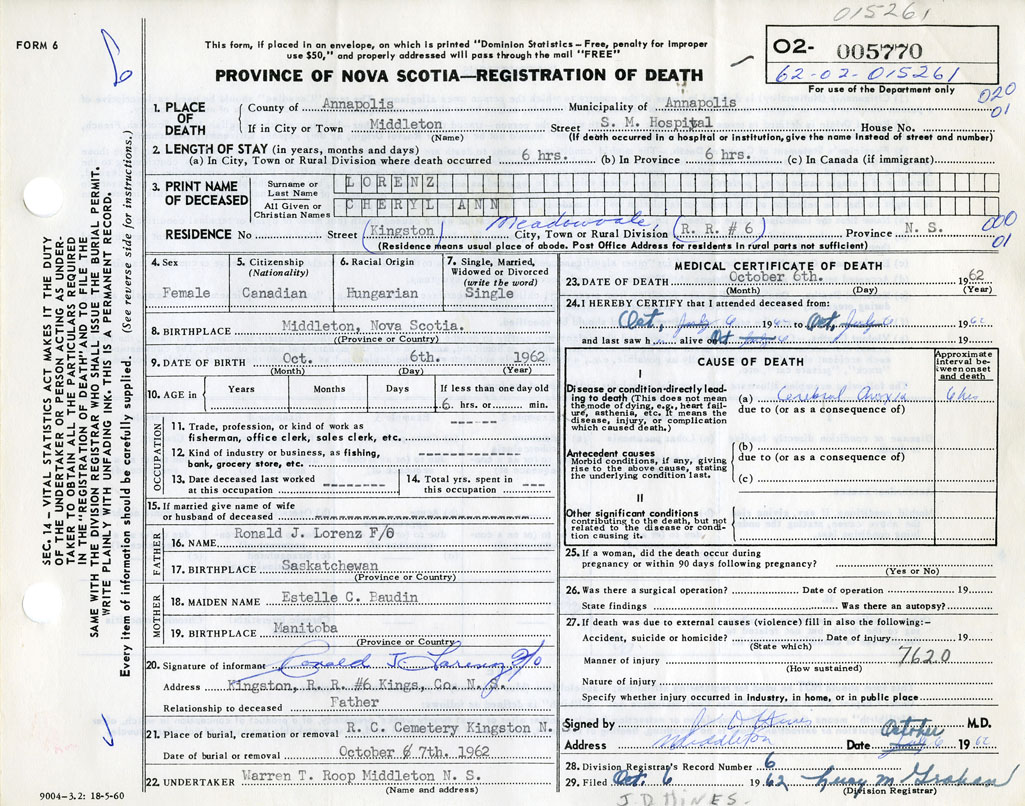 015261
FORM 6
This form, if placed in an envelope, on which is printed "Dominion Statistics–Free, penalty for improper
use $50," and properly addressed will pass through the mail "FREE"
O2- 005770
62-02-015261
PROVINCE OF NOVA SCOTIA—REGISTRATION OF DEATH
For use of the Department only
020
01
1. PLACE OF DEATH
County of Annapolis Municipality of Annapolis
If in City or Town Middleton Street S. M. Hospital House No.
(Name) (If death occurred in a hospital or institution, give the name instead of street and number)
2. LENGTH OF STAY (in years, months and days)
(a) In City, Town or Rural Division where death occurred 6 hrs. (b) In Province 6 hrs. (c) In Canada (if immigrant)
3. PRINT NAME OF DECEASED
Surname or Last Name LORENZ
All Given or Christian Names CHERYL ANN
Meadowvale
000
01
RESIDENCE No Street (Kingston) City, Town or Rural Division (R. R. # 6) Province N. S.
(Residence means usual place of abode. Post Office Address for residents in rural parts not sufficient)
4. Sex
Female
5. Citizenship
(Nationality)
Canadian
6. Racial Origin
Hungarian
7. Single, Married,
Widowed or Divorced
(write the word)
Single
8. BIRTHPLACE Middleton, Nova Scotia.
(Province or Country)
9. DATE OF BIRTH Oct. 6th. 1962
(Month) (Day) (Year)
10. AGE in Years Months Days If less than one day old
6 hrs. or min.
OCCUPATION
11. Trade, profession, or kind of work as
fisherman, office clerk, sales clerk, etc.
12. Kind of industry or business, as fishing,
bank, grocery store, etc.
13. Date deceased last worked
at this occupation
14. Total yrs. spent in
this occupation
15. If married give name of wife
or husband of deceased
FATHER
16. NAME Ronald J. Lorenz F/O
17. BIRTHPLACE Saskatchewan
(Province or Country)
MOTHER
18. MAIDEN NAME Estelle C. Baudin
19. BIRTHPLACE Manitoba
(Province or Country
20. Signature of informant Ronald J. Lorenz F/O
Address Kingston, R. R. #6 Kings, Co. N. S.
Relationship to deceased Father
21. Place of burial, cremation or removal R. C. Cemetery Kingston N. S.
Date of burial or removal October 6 7th. 1962
22. UNDERTAKER Warren T. Roop Middleton N. S.
(Name and address)
9004-3.2: 18-5-60
MEDICAL CERTIFICATE OF DEATH
23. DATE OF DEATH October 6th. 1962
(Month) (Day) (Year)
24. I HEREBY CERTIFY that I attended deceased from:
Oct, July 6 1962 to Oct, July 6 1962
and last saw h alive on Oct July 6 19
CAUSE OF DEATH
Approximate
interval be-
tween onset
and death
I
Disease or condition directly lead-
ing to death (This does not mean
the mode of dying, e.g., heart fail-
ure, asthenia, etc. It means the
disease, injury, or complication
which caused death.)
(a) Cerebral Anoxia 6 hrs
due to (or as a consequence of)
Antecedent causes
Morbid conditions, if any, giving
rise to the above cause, stating
the underlying condition last.
(b)
due to (or as a consequence of)
(c)
II
Other significant conditions
contributing to the death, but not
related to the disease or condi-
tion causing it.
25. If a woman, did the death occur during
pregnancy or within 90 days following pregnancy?
(Yes or No)
26. Was there a surgical operation? Date of operation 19
State findings Was there an autopsy?
27. If death was due to external causes (violence) fill in also the following:-
Accident, suicide or homicide? Date of injury 19
(State which)
Manner of injury 7620
(How sustained)
Nature of injury
Specify whether injury occurred in industry, in home, or in public place
Signed by J D Hines M.D.
Address Middleton Date October July 6 1962
28. Division Registrar's Record Number 6
29. Filed Oct. 6 1962 Lucy M Graham
(Division Registrar)
J. D HINES.
SEC. 14 – VITAL STATISTICS ACT MAKES IT THE DUTY
OF THE UNDERTAKER OR PERSON ACTING AS UNDER-
TAKER TO OBTAIN ALL THE PARTICULARS REQUIRED
IN THE "REGISTRATION OF DEATH" AND TO FILE THE
SAME WITH THE DIVISION REGISTRAR WHO SHALL ISSUE THE BURIAL PERMIT.
WRITE PLAINLY WITH UNFADING INK. THIS IS A PERMANENT RECORD.
Every item of information should be carefully supplied. (See reverse side for instructions.)